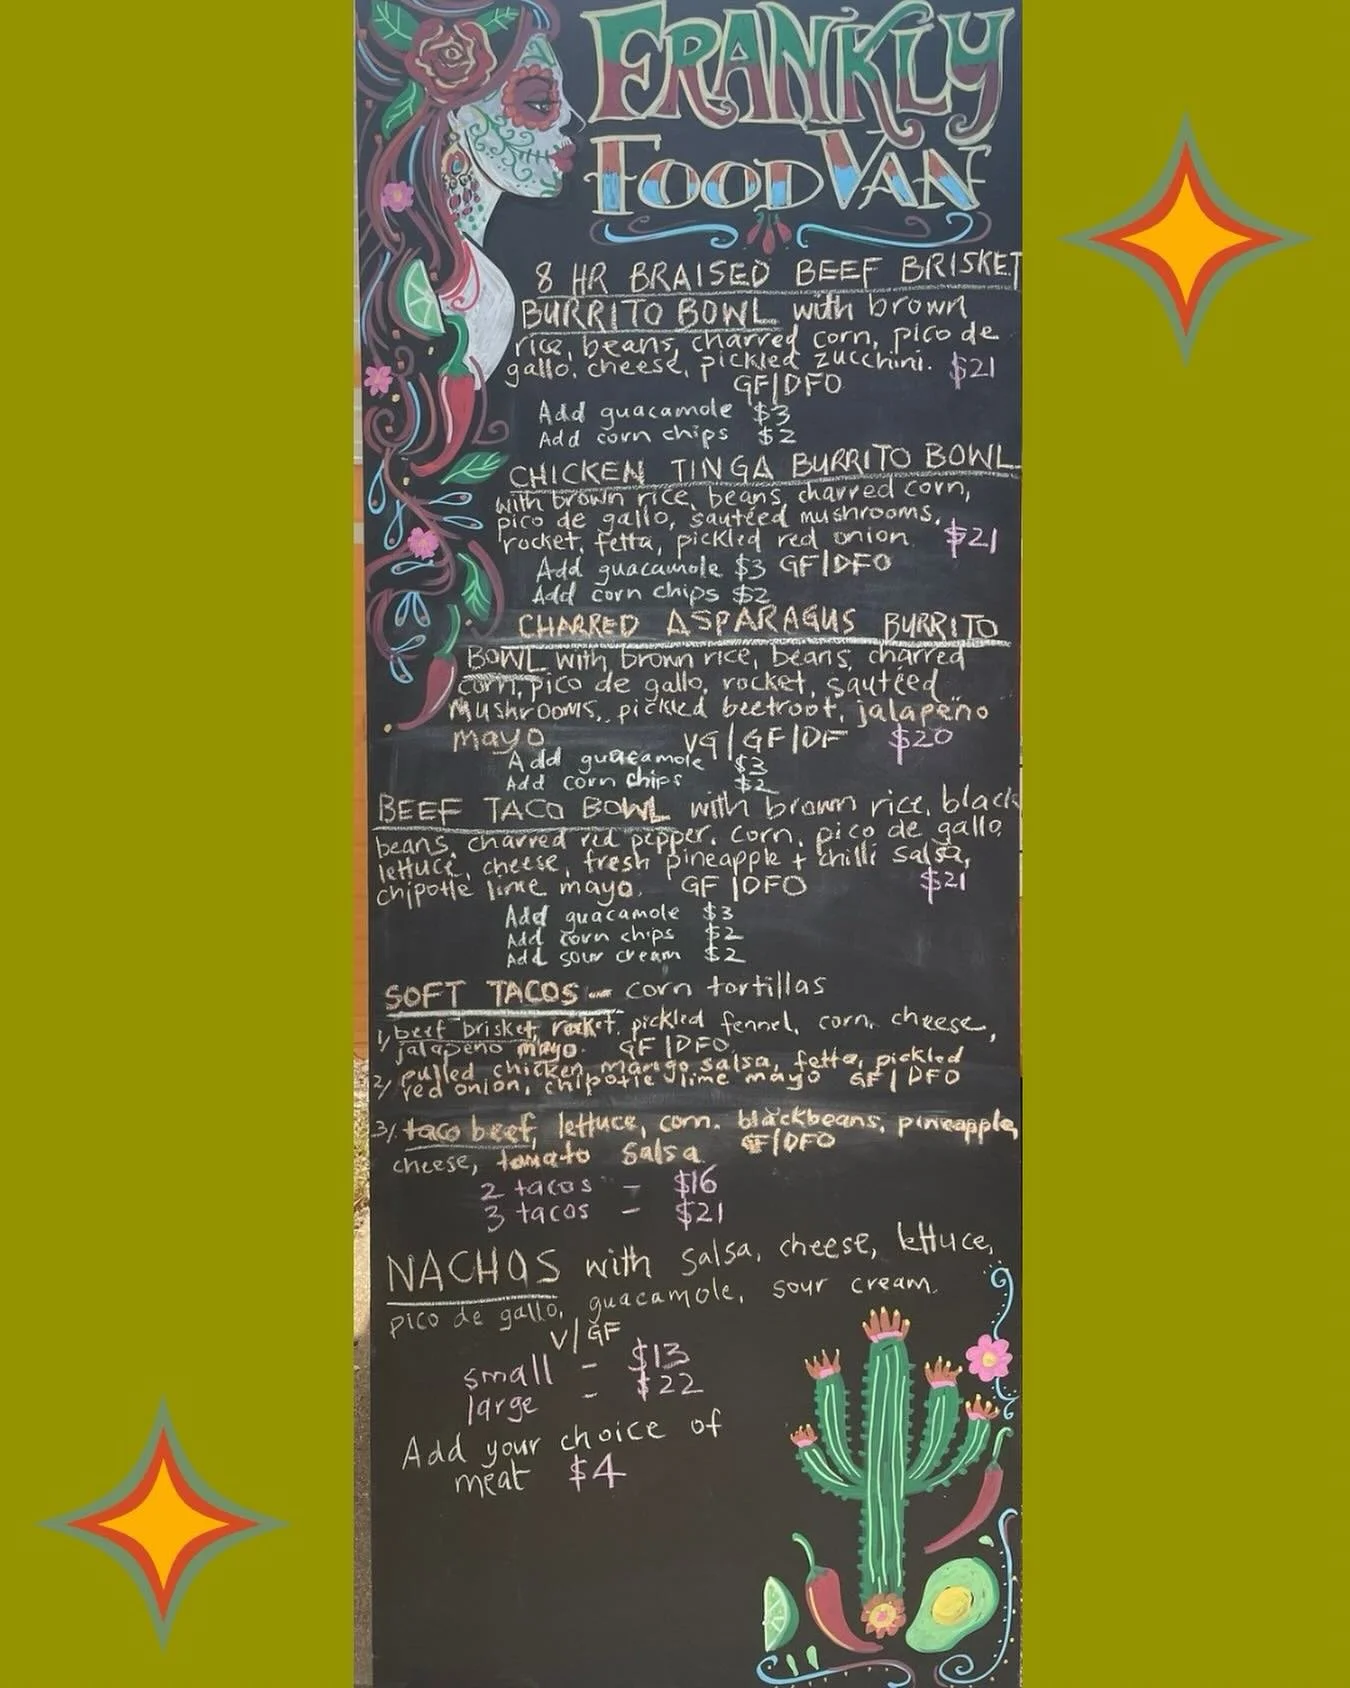 FRANKLY
FOOD VAN
8 HR BRAISED BEEF BRISKET
BURRITO BOWL with brown
rice, beans, charred corn, pico de
gallo, cheese, pickled zucchini. $21
GF|DFO
Add guacamole $3
Add corn chips $2
CHICKEN TINGA BURRITO BOWL
with brown rice, beans, charred corn,
pico de gallo, sautéed mushrooms,
rocket, fetta, pickled red onion. $21
Add guacamole $3 GF|DFO
Add corn chips $2
CHARRED ASPARAGUS BURRITO
BOWL with brown rice, beans, charred
corn, pico de gallo, rocket, sautéed
mushrooms, pickled beetroot, jalapeño
mayo VG|GF|DF $20
Add guacamole $3
Add corn chips $2
BEEF TACO BOWL with brown rice, black
beans, charred red pepper, corn, pico de gallo,
lettuce, cheese, fresh pineapple + chilli salsa,
chipotle lime mayo. GF|DFO $21
Add guacamole $3
Add corn chips $2
Add sour cream $2
SOFT TACOS - corn tortillas
1/ beef brisket, rocket, pickled fennel, corn, cheese,
jalapeño mayo. GF|DFO
2/ pulled chicken, mango salsa, fetta, pickled
red onion, chipotle lime mayo GF|DFO
3/ taco beef, lettuce, corn, blackbeans, pineapple,
cheese, tomato salsa GF|DFO
2 tacos - $16
3 tacos - $21
NACHOS with salsa, cheese, lettuce,
pico de gallo, guacamole, sour cream.
V/GF
small - $13
large - $22
Add your choice of
meat $4